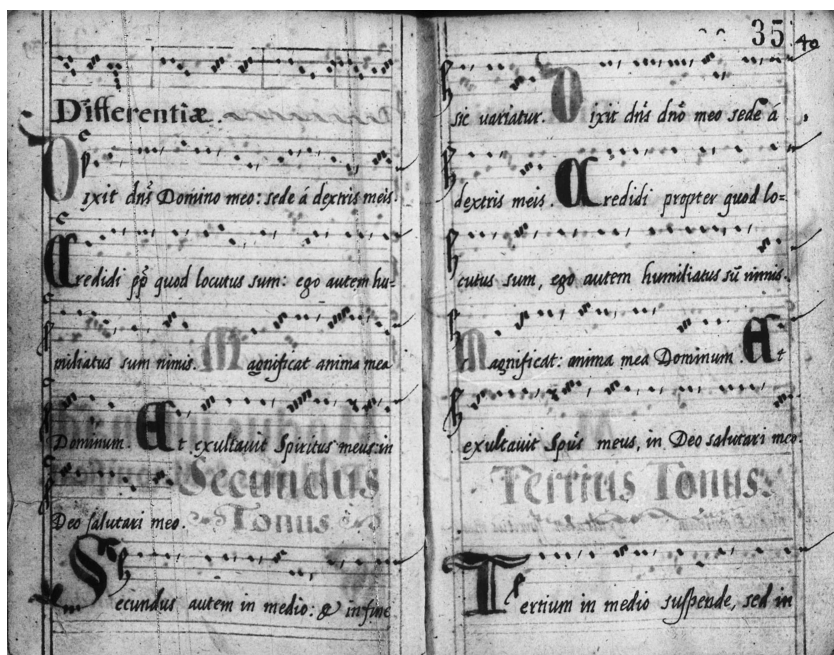 Differentiæ.
Dixit dn̄s Domino meo: sede á dextris meis.
Credidi pp̄ quod locutus sum: ego autem hu-
miliatus sum nimis. Magnificat anima mea
Dominum. Et exultauit Spiritus meus: in
Secundus
Deo salutari meo.
Tonus
Secundus autem in medio: & in fine
35 40
sic uariatur. Dixit dn̄s dn̄o meo sede á
dextris meis. Credidi propter quod lo=
cutus sum, ego autem humiliatus sū nimis.
Magnificat: anima mea Dominum. Et
exultauit Spūs meus, in Deo salutari meo.
Tertius Tonus.
Tertium in medio suspende, sed in